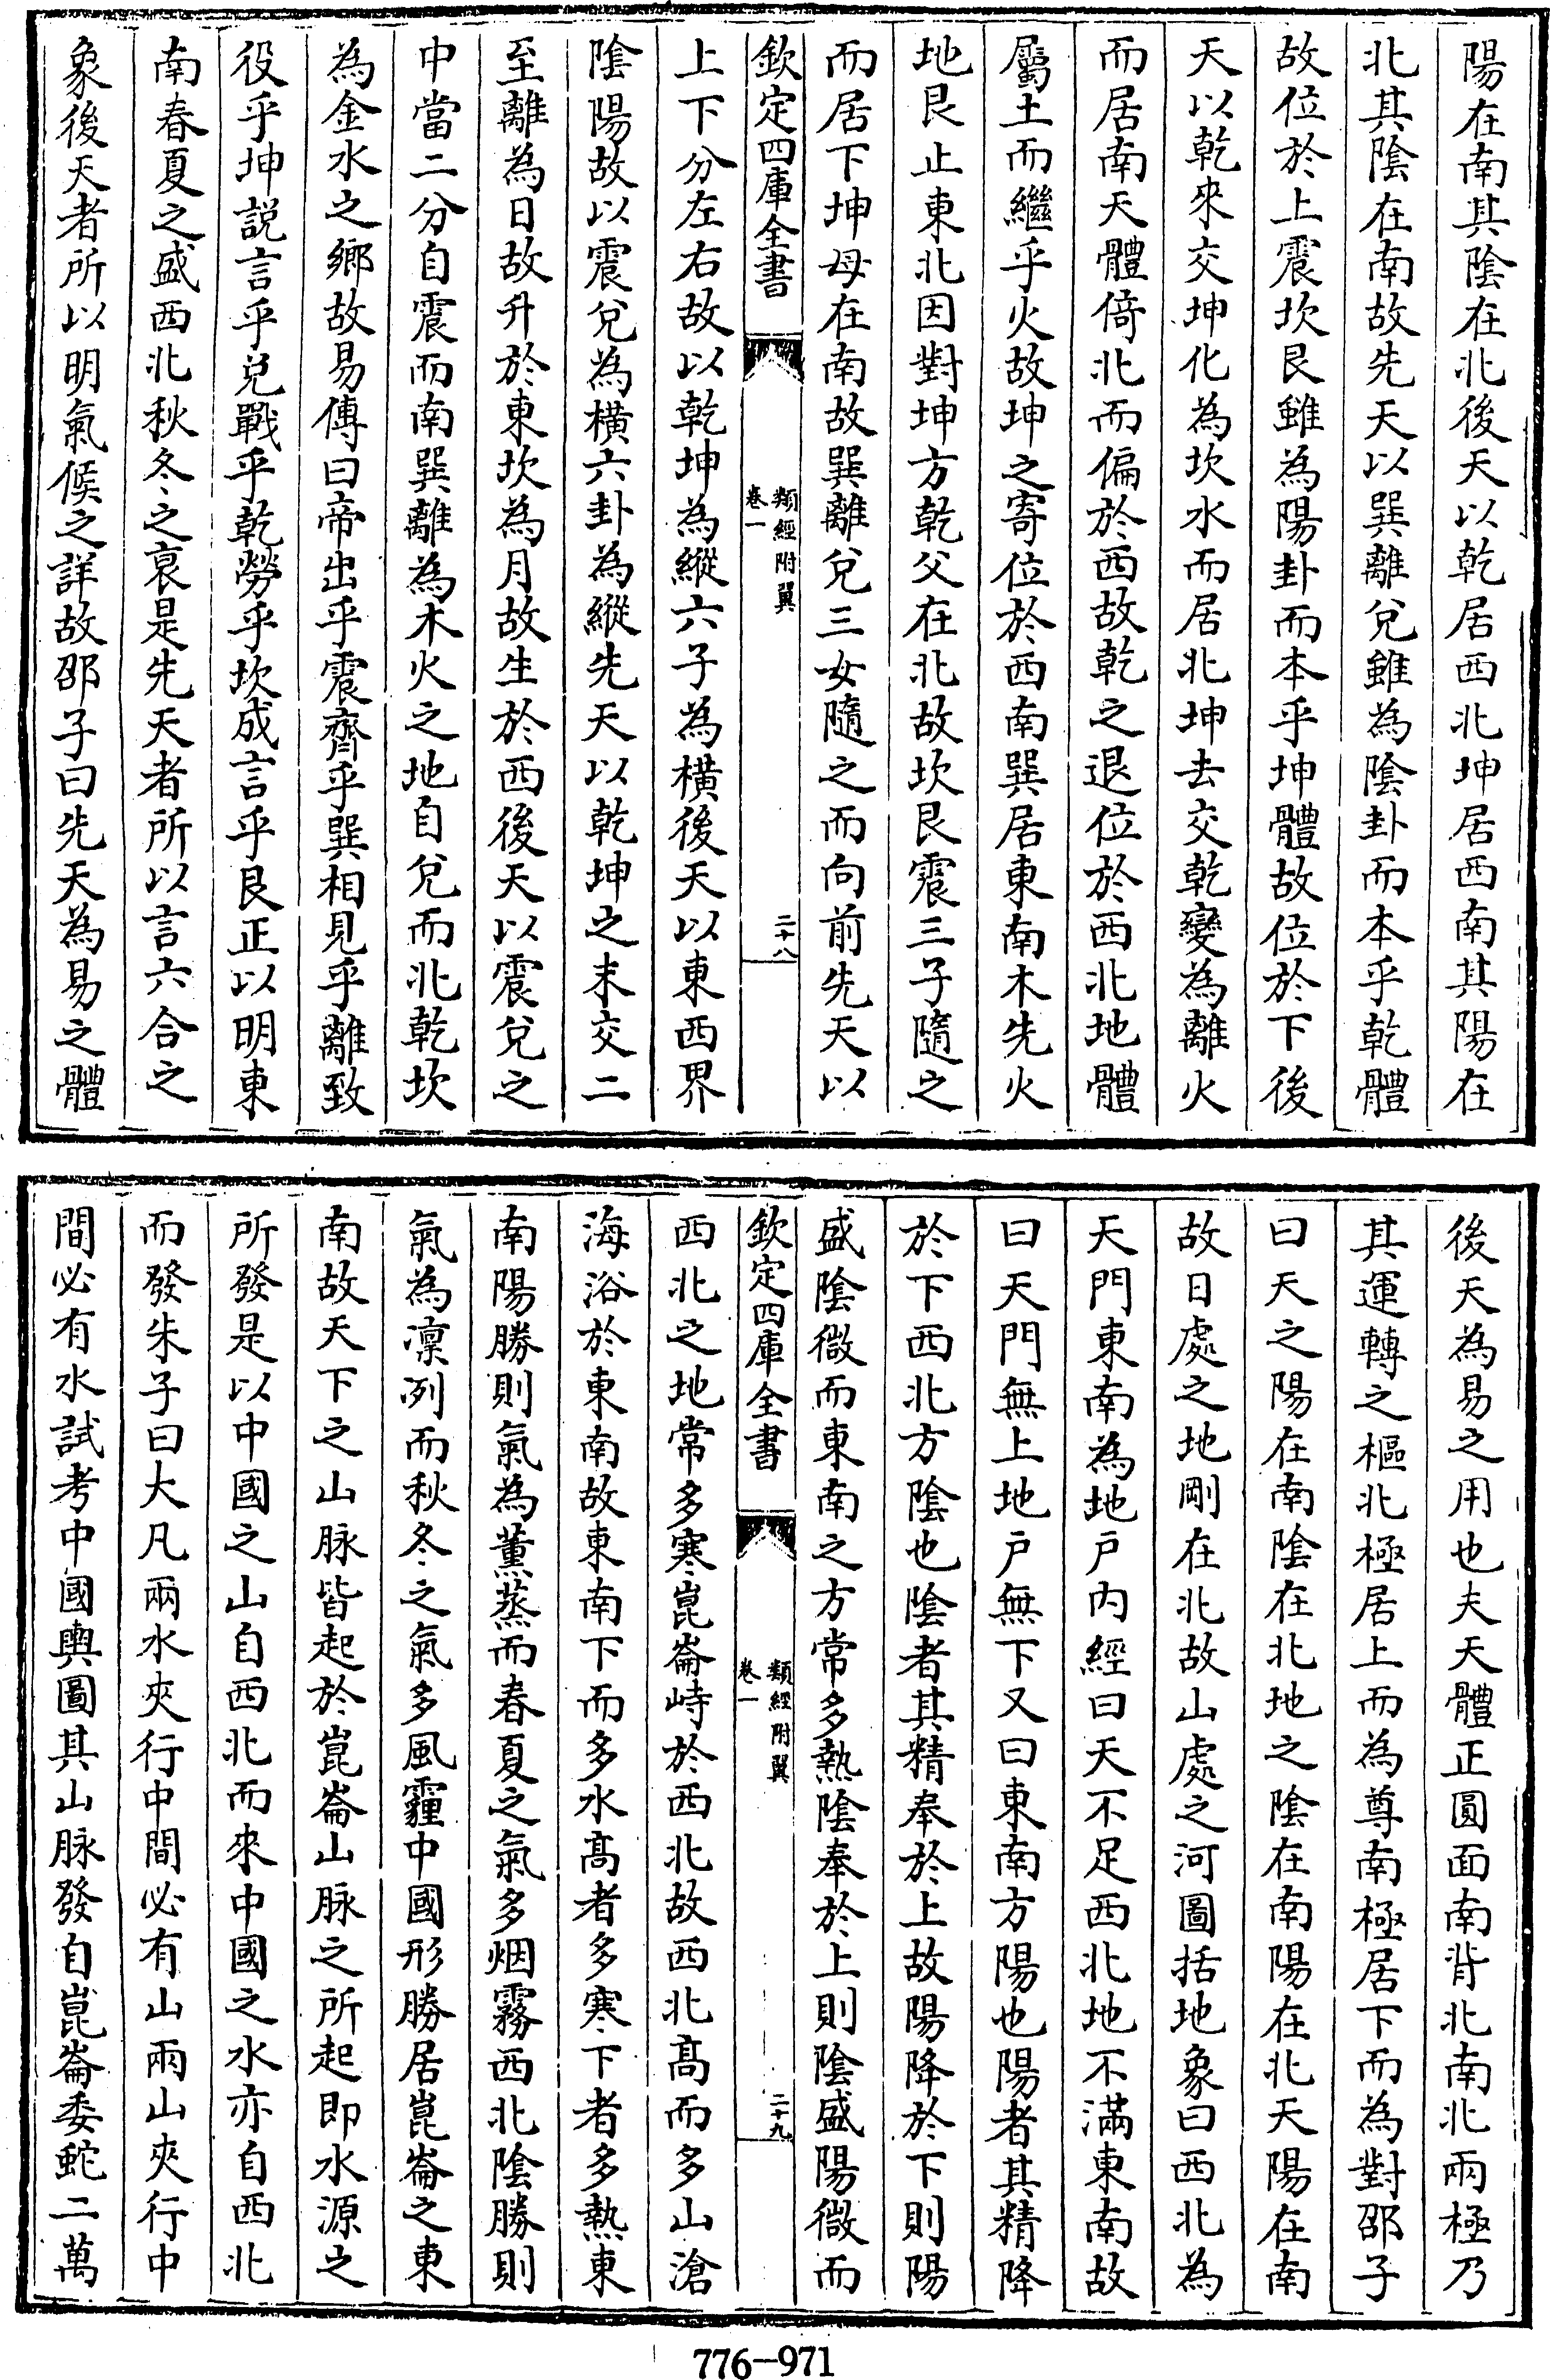 陽在南其陰在北後天以乾居西北坤居西南其陽在
北其陰在南故先天以巽離兌雖為陰卦而本乎乾體
故位於上震坎艮雖為陽卦而本乎坤體故位於下後
天以乾來交坤化為坎水而居北坤去交乾變為離火
而居南天體倚北而偏於西故乾之退位於西北地體
屬土而繼乎火故坤之寄位於西南巽居東南木先火
地艮止東北因對坤方乾父在北故坎艮震三子隨之
而居下坤母在南故巽離兌三女隨之而向前先天以
欽定四庫全書
類經附翼
卷一
二十八
上下分左右故以乾坤為縱六子為橫後天以東西界
陰陽故以震兌為橫六卦為縱先天以乾坤之末交二
至離為日故升於東坎為月故生於西後天以震兌之
中當二分自震而南巽離為木火之地自兌而北乾坎
為金水之鄉故易傳曰帝出乎震齊乎巽相見乎離致
役乎坤說言乎兌戰乎乾勞乎坎成言乎艮正以明東
南春夏之盛西北秋冬之衰是先天者所以言六合之
象後天者所以明氣候之詳故邵子曰先天為易之體
後天為易之用也夫天體正圓面南背北南北兩極乃
其運轉之樞北極居上而為尊南極居下而為對邵子
曰天之陽在南陰在北地之陰在南陽在北天陽在南
故日處之地剛在北故山處之河圖括地象曰西北為
天門東南為地戶內經曰天不足西北地不滿東南故
曰天門無上地戶無下又曰東南方陽也陽者其精降
於下西北方陰也陰者其精奉於上故陽降於下則陽
盛陰微而東南之方常多熱陰奉於上則陰盛陽微而
欽定四庫全書
類經附翼
卷一
二十九
西北之地常多寒崑崙峙於西北故西北高而多山滄
海浴於東南故東南下而多水高者多寒下者多熱東
南陽勝則氣為薰蒸而春夏之氣多烟霧西北陰勝則
氣為凜冽而秋冬之氣多風霾中國形勝居崑崙之東
南故天下之山脉皆起於崑崙山脉之所起即水源之
所發是以中國之山自西北而來中國之水亦自西北
而發朱子曰大凡兩水夾行中間必有山兩山夾行中
間必有水試考中國輿圖其山脉發自崑崙委蛇二萬
776-971